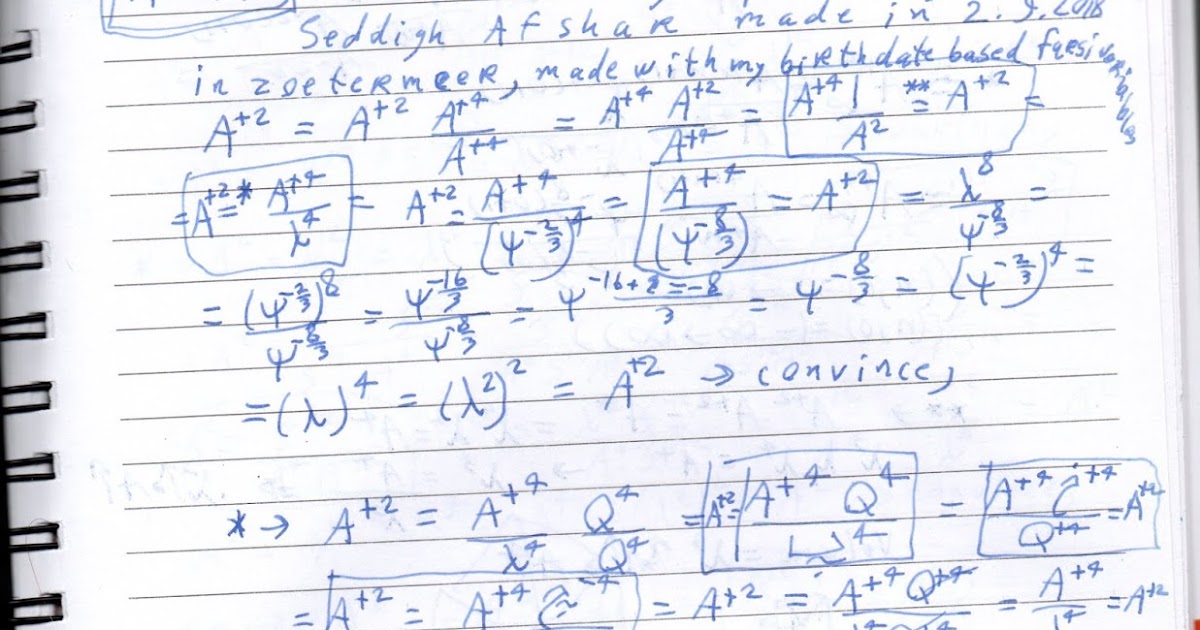 Seddigh Afshar made in 2.9.2018
in zoetermeer, made with my birthdate based
A⁺² = A⁺² A⁺⁴/A⁺⁴ = A⁺⁴ A⁺²/A⁺⁴ = A⁺⁴ 1/A² **= A⁺² =
= A⁺² =* A⁺⁴/λ⁴ = A⁺² = A⁺⁴/(ψ^(-2/3))⁴ = A⁺⁴/(ψ^(-8/3)) = A⁺² = λ⁸/ψ^(-8/3) =
= (ψ^(-2/3))⁸/ψ^(-8/3) = ψ^(-16/3)/ψ^(-8/3) = ψ^((-16+8=-8)/3) = ψ^(-8/3) = (ψ^(-2/3))⁴ =
= (λ)⁴ = (λ²)² = A⁺² → convince,
* → A⁺² = A⁺⁴/λ⁴ Q⁴/Q⁴ = A⁺² = A⁺⁴ Q⁴ = A⁺⁴ /Q⁺⁴ = A⁺²
= A⁺² = A⁺⁴ = A⁺² = A⁺⁴ Q⁺⁴ = A⁺⁴ = A⁺²